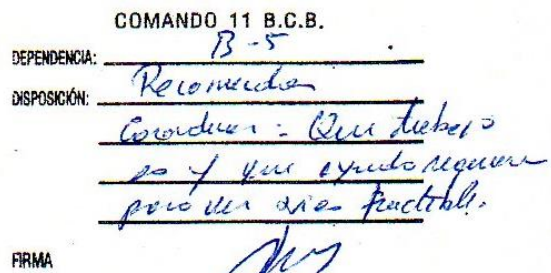 COMANDO 11 B.C.B.
DEPENDENCIA: B-5
DISPOSICIÓN: Recomendar
Coordinar: Que trabajo
es y que ayuda requiere
para ver si es factible.
FIRMA